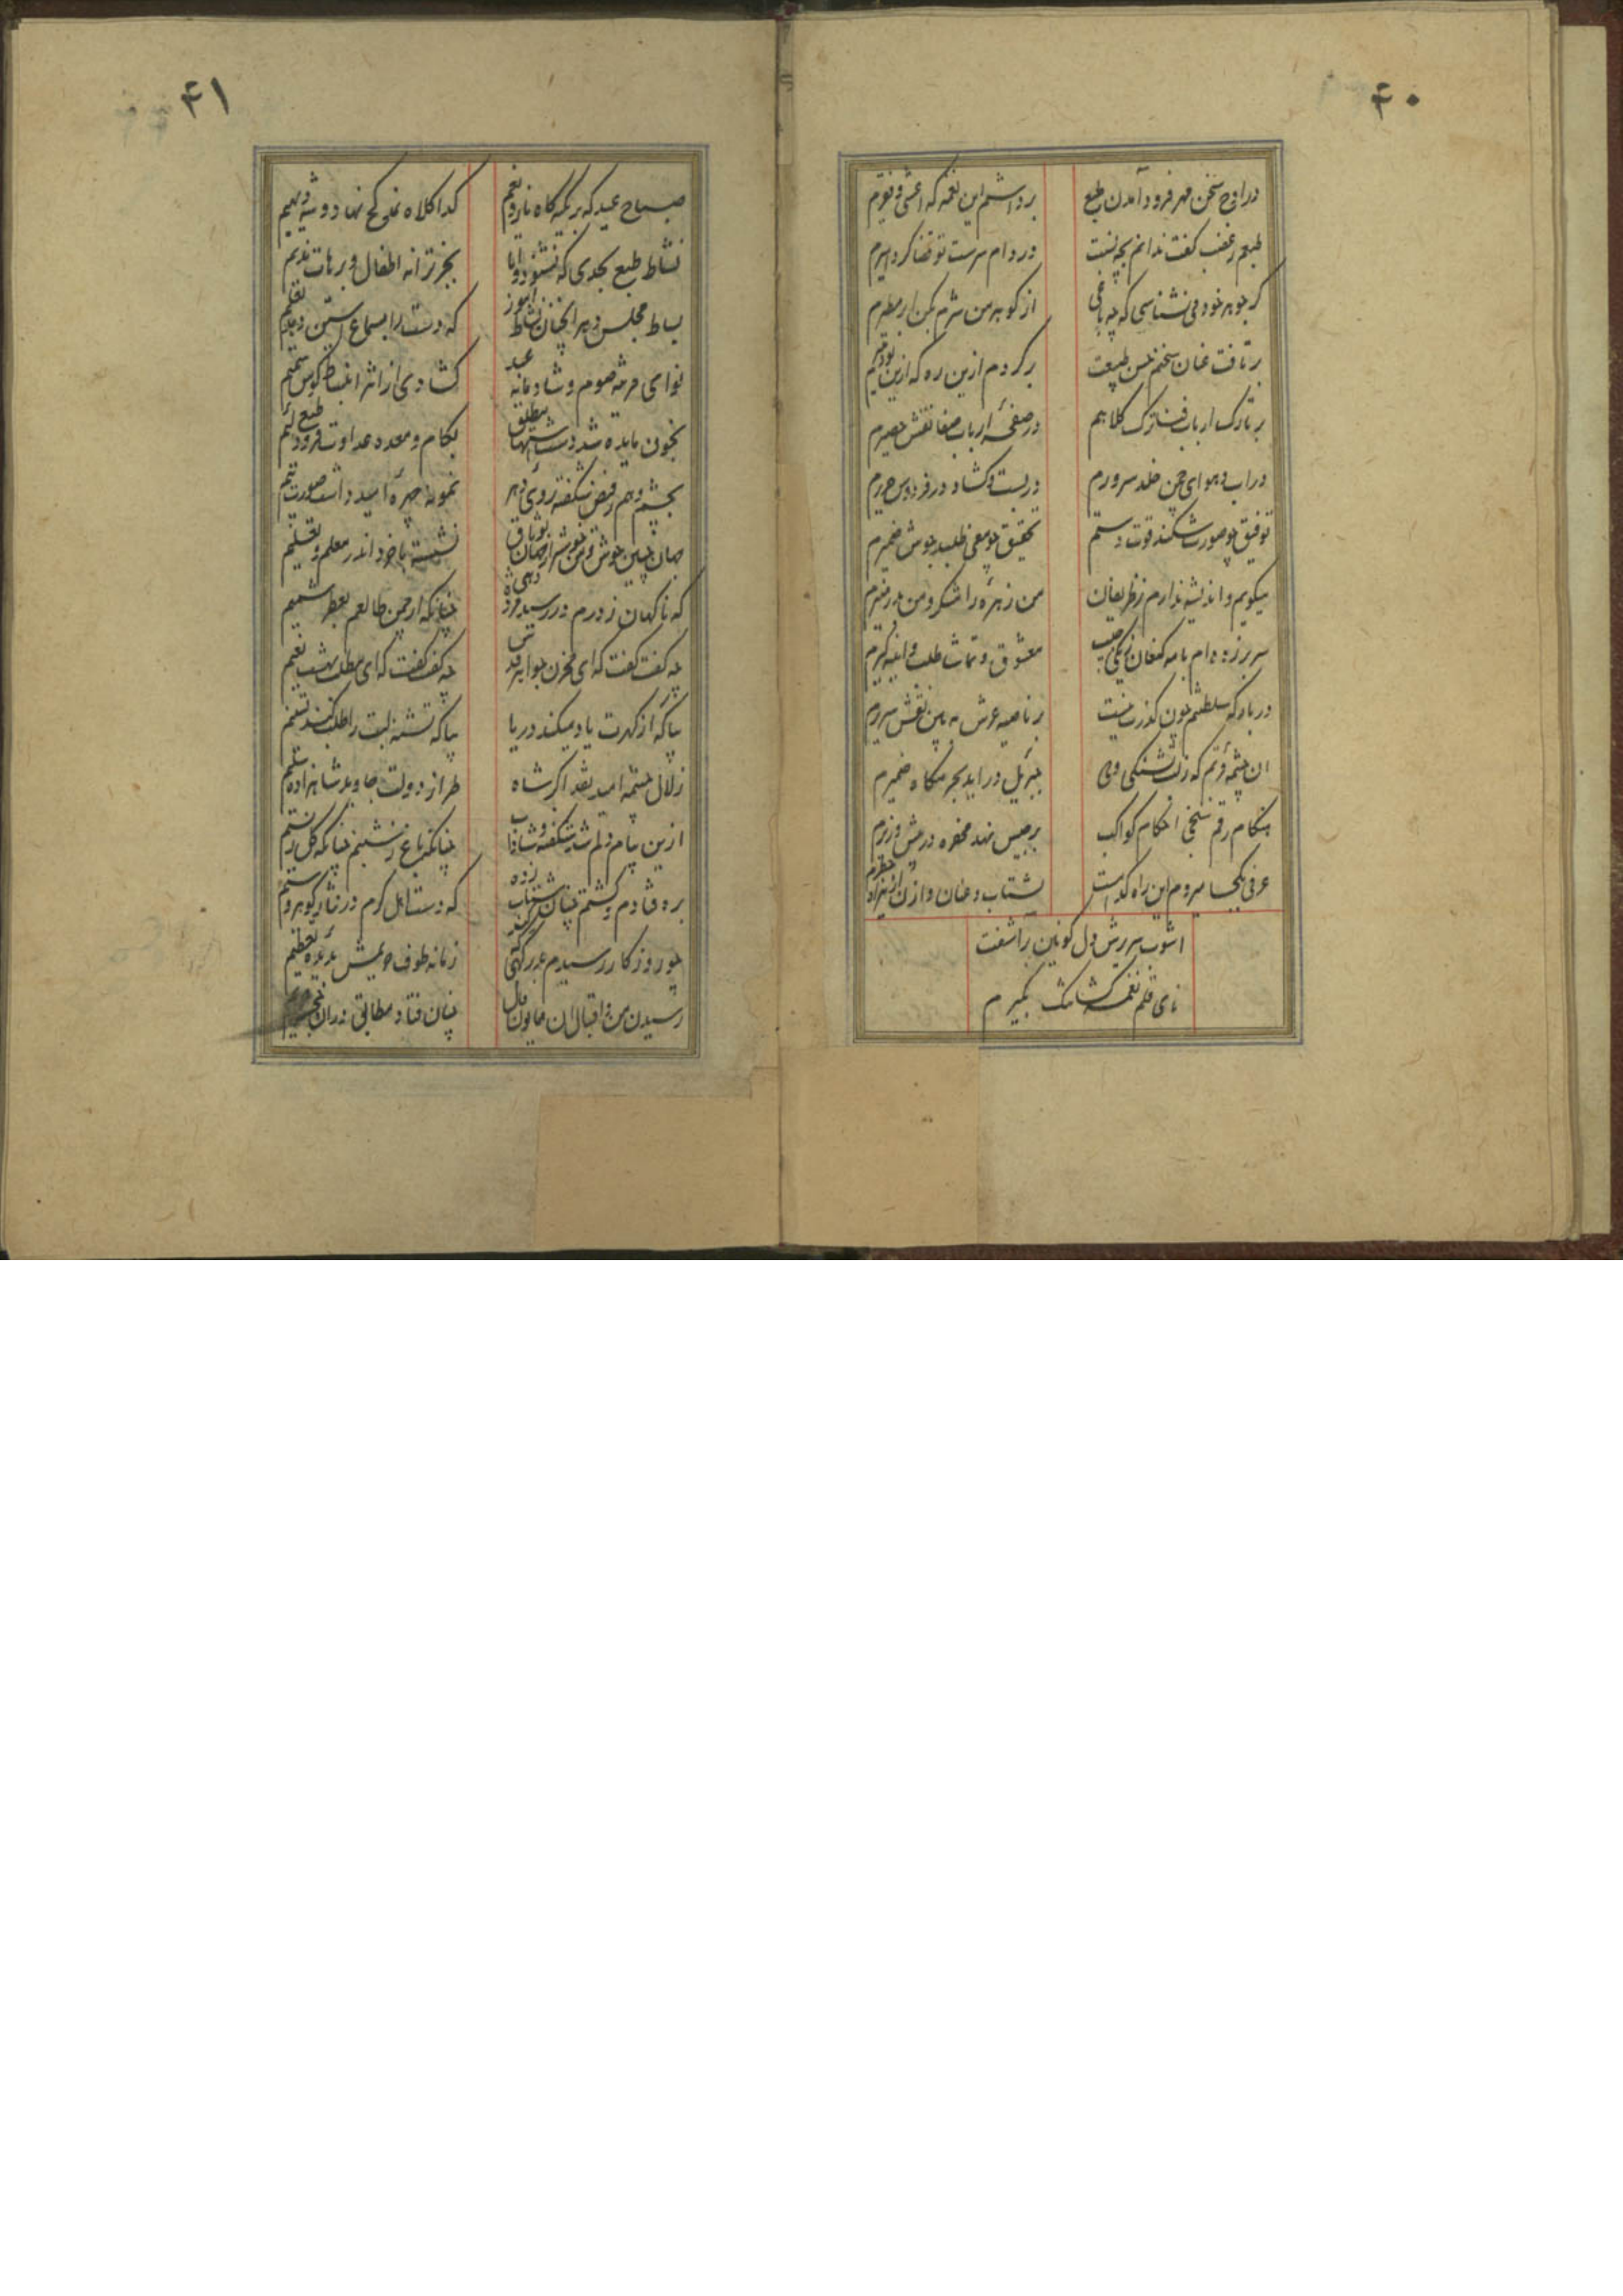 ۴۰
در اوج سخن مهر فرود آمدن طبع
برداشتم این نغمه که اعشی و نقرم
طبعم ز غضب گفت ندانم بچه نسبت
در دام سرست تو قضا کرد اسیرم
گر جوهر خود می نشناسی که چه باغی
از گوهر من شرم کن ار مطرم
بر تافت عنان سخنم حسن طبیعت
برگردم ازین ره که ازین
بر تارک ارباب فنا ترک کلاهم
در صفحه ارباب صفا نقش حصیرم
در آب و هوای چمن خلد سرورم
در بست و گشاد در فردوس
توفیق چو صورت شکند قوت دستم
تحقیق چو معنی طلبد جوش ضمیرم
میگویم و اندیشه ندارم ز ظریفان
من زهره رامشگر و من بدر منیرم
سر بر زده ام با مه کنعان ز یکی جیب
معشوق و تماشا طلب و آینه گیرم
در بارگه سلطنتم چون گذرت نیست
بر ناصیه عرش ببین نقش سریرم
آن چشمه فرتم که ز لب تشنگی
جبریل در آید بحرمگاه ضمیرم
هنگام رقم سنجی احکام کواکب
برجیس نهد محبره در پیش وزیرم
عرفی بکجا میروم این راه کدام است
بشتاب و عنان وازن
آشوب سر رش دل کونین برآشفت
نای قلم نغمه کشا مکث بگیرم
۴۱
صباح عید که در تکیه گاه ناز و نعیم
گدا کلاه نمد کج نهاد و شه دیهیم
نشاط طبع بحدی که نشنود دانا
بجز ترانه اطفال و برهات ندیم
بساط مجلس دهر آنچنان نشاط آموز
که دست را بسماع آستین دهد تعلیم
نوای مرثیه صوم و شادیانه عید
گشاد می از اثر انبساط گوش صمیم
بخون مایده شد دست اشتها مطلق
بکام و معده عداوت فزود طبع لئیم
بچشم وهم ز فیض شگفته روئی دهر
نمونه چهره امید داشت صورت بیم
جهان چنین خوش و من خوشتر از جهان بوثاق
نشسته با خرد اندر معلم و تعلیم
که ناگهان ز درم در رسید مژده دهی
چنانکه از چمن طالعم بعطر شمیم
چه گفت گفت که ای مخزن جواهر قدس
چه گفت گفت که ای مطلب بهشت نعیم
بیا که از گهرت یاد میکند دریا
بیا که تشنه لبت را طلب کند تسنیم
زلال چشمه امید نقد اکبر شاه
طراز دولت جاوید شاهزاده سلیم
ازین پیام دلم شد شگفته و شاداب
چنانکه باغ ز شبنم چنانکه گل ز نسیم
بره فتادم و گشتم چنان شتاب زده
که دست اهل کرم در نثار گوهر و سیم
چو روزگار رسیدم بدرگهی
زمانه طوف حریمش بدیده تعظیم
رسیدن من و اقبال آن همایون فال
چنان فتاد مطابق در آن